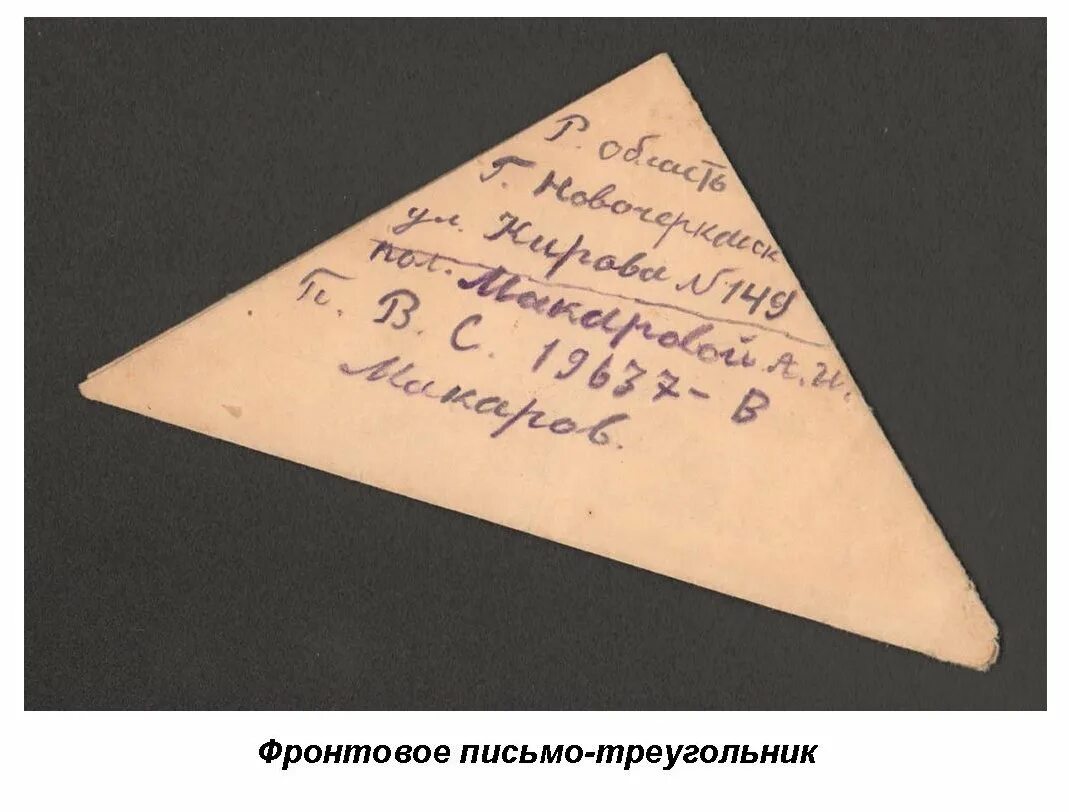 Р. область
Г. Новочеркасск
ул. Кирова № 149
пол. Макаровой А. И.
П. В. С. 19637-В
Макаров.
Фронтовое письмо-треугольник